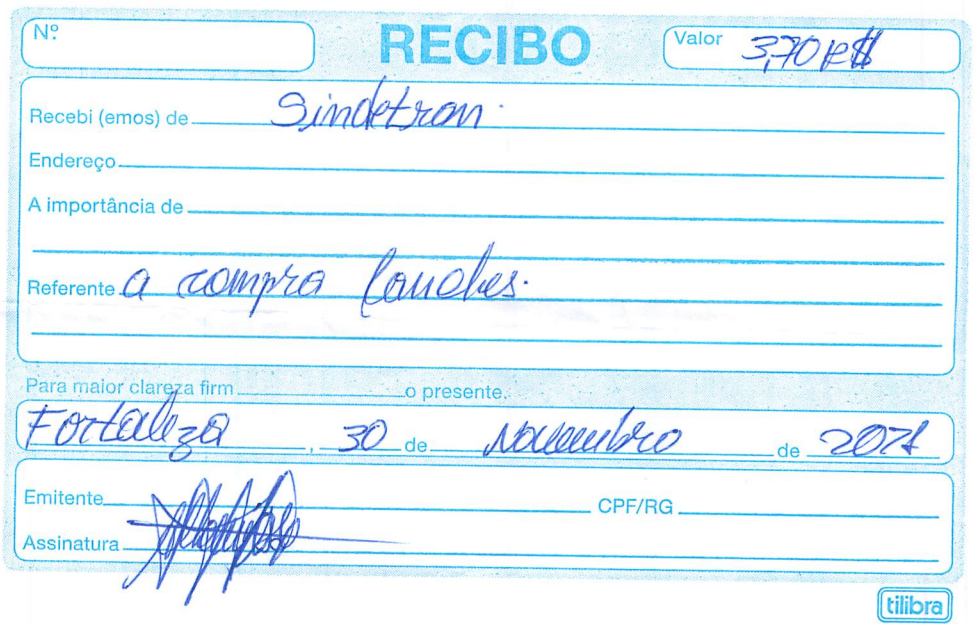 Nº
RECIBO
Valor 3,70 R$
Recebi (emos) de Sindetran.
Endereço
A importância de
Referente a compra lanches.
Para maior clareza firm o presente.
Fortaleza, 30 de Novembro de 2021
Emitente CPF/RG
Assinatura
tilibra